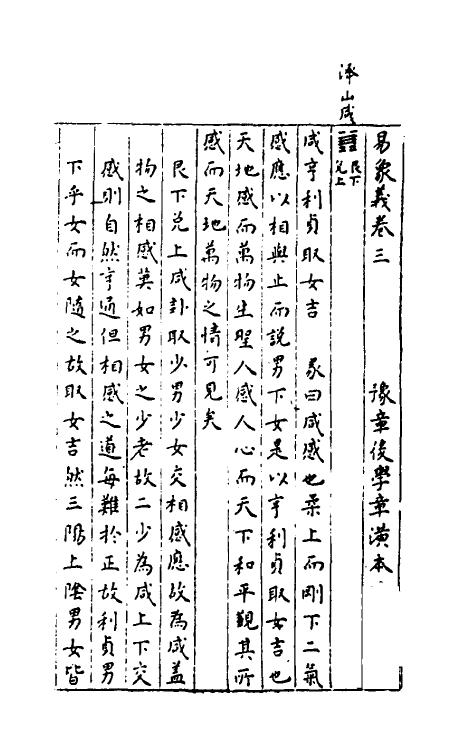 易象義卷三　豫章後學章潢本
澤山咸
䷞艮下
兌上
咸亨利貞取女吉　彖曰咸感也柔上而剛下二氣
感應以相與止而說男下女是以亨利貞取女吉也
天地感而萬物生聖人感人心而天下和平觀其所
感而天地萬物之情可見矣
艮下兌上咸卦取少男少女交相感應故為咸蓋
物之相感莫如男女之少老故二少為咸上下交
感則自然亨通但相感之道每難於正故利貞男
下乎女而女隨之故取女吉然三陽上陰男女皆